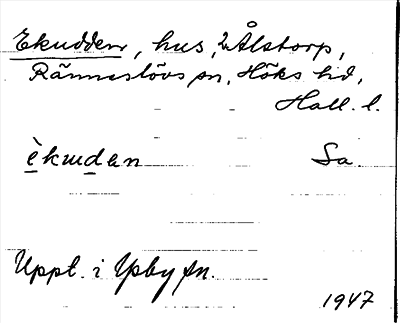 Ekudden, hus, 2 Ålstorp,
Ränneslövs sn, Höks hd,
Hall. l.
èkuden Sa
Uppt. i Ysby sn.
1947